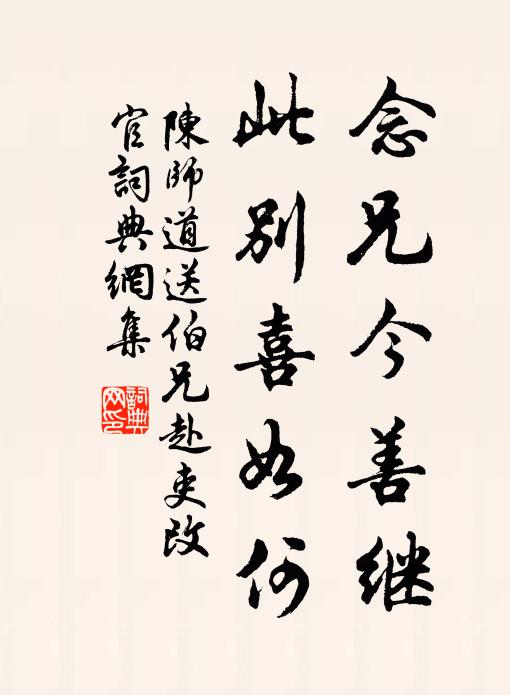 念兄今善继
此别喜如何
陳師道送伯兄赴吏改
官詞典網集
詞典
网印